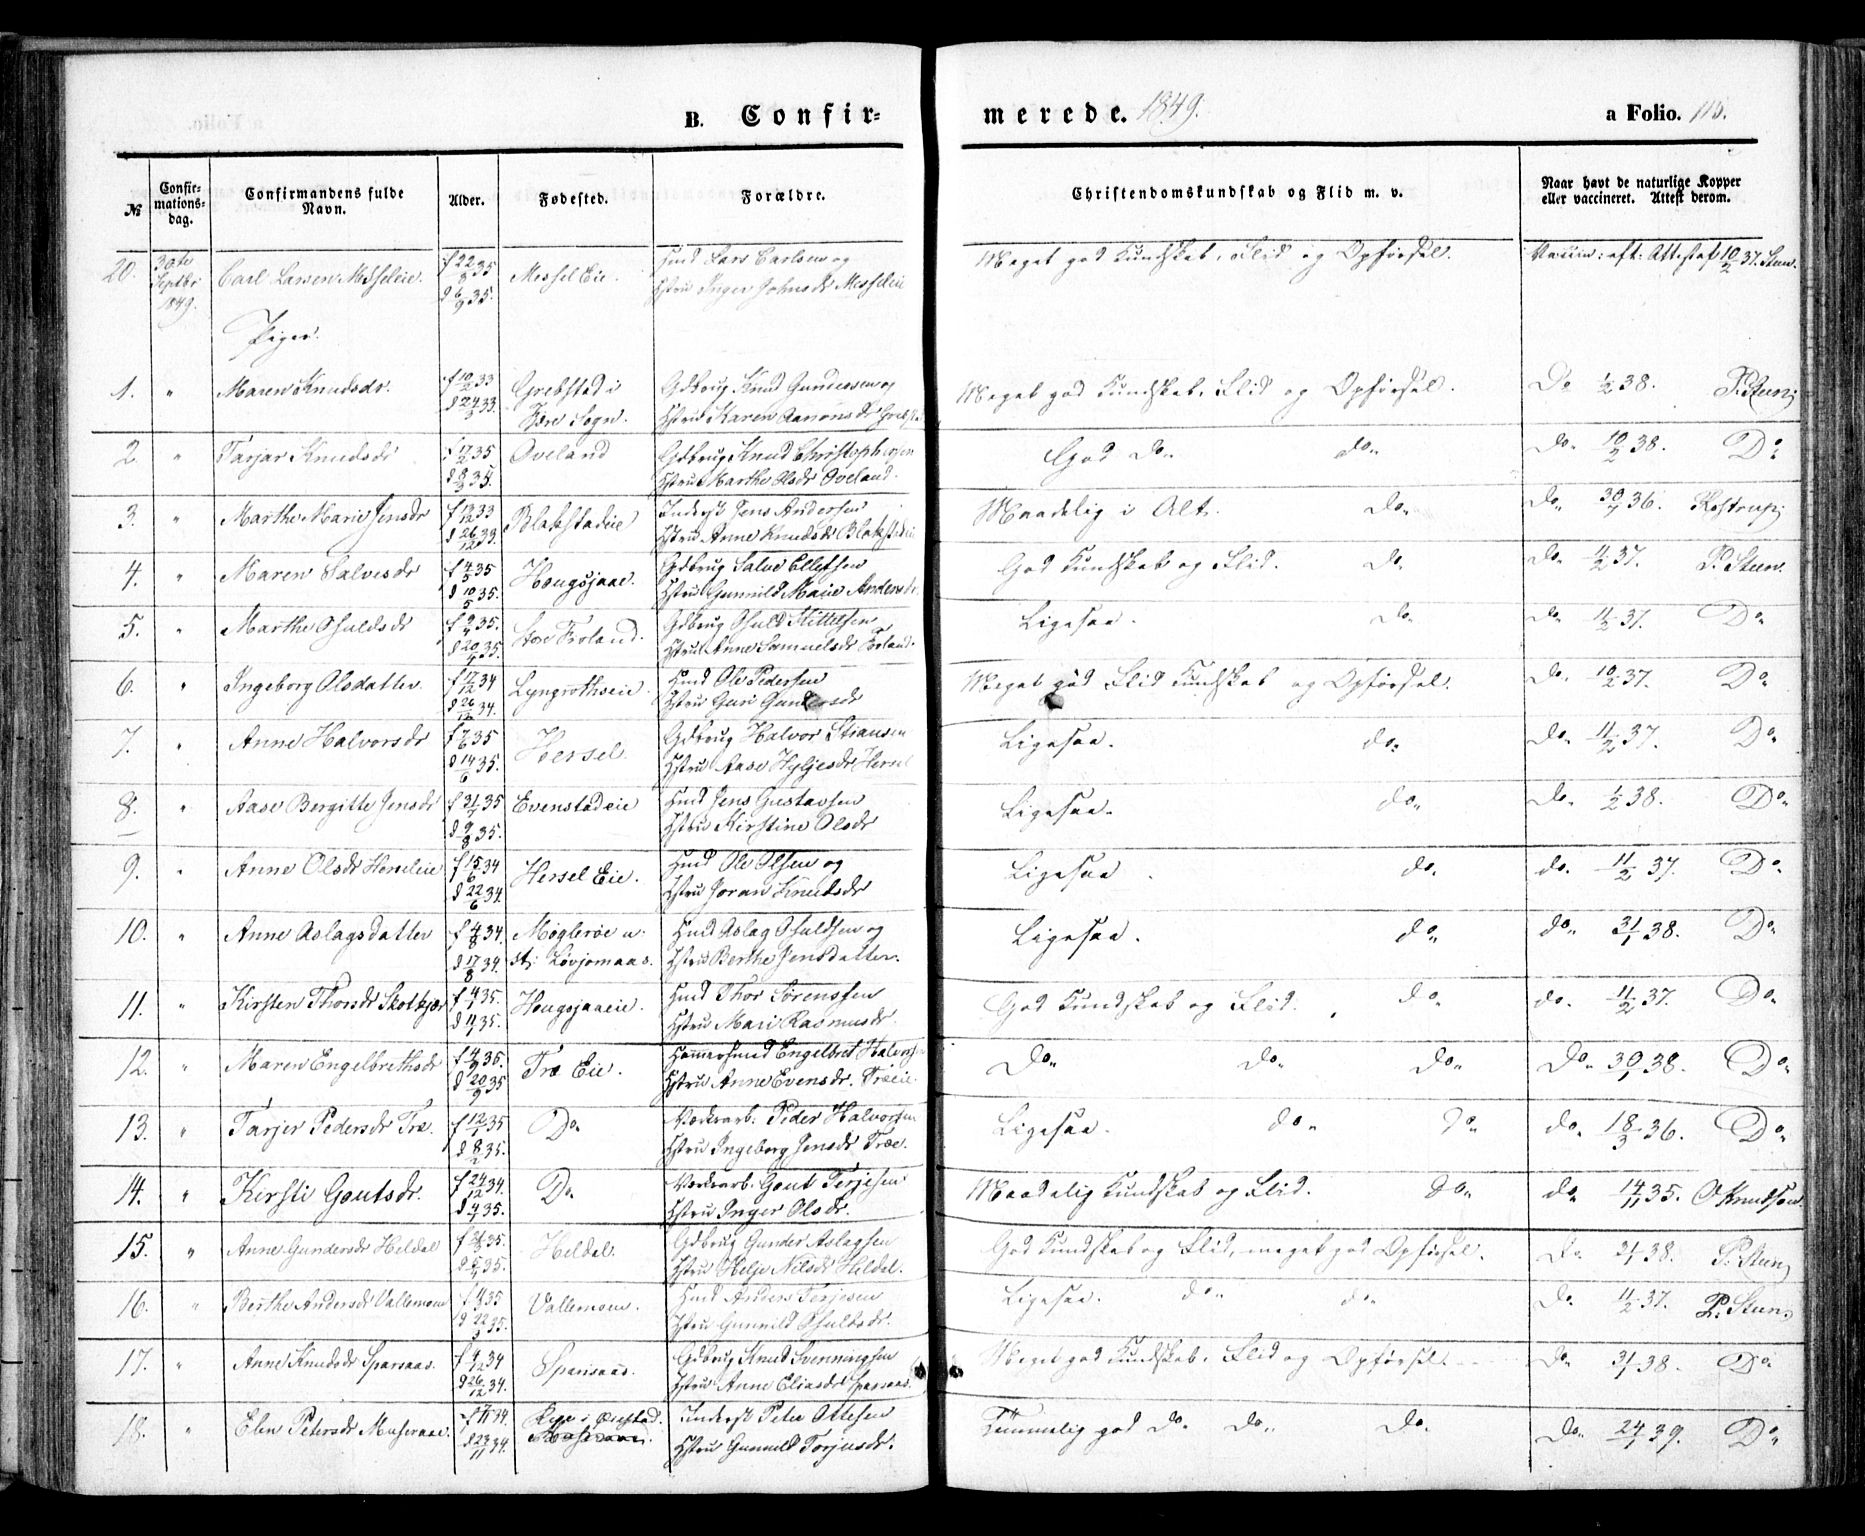 B. Confir-
merede. 1849.
a Folio. 115.
№
Confir-
mations-
dag.
Confirmandens fulde
Navn.
Alder.
Fødested.
Forældre.
Christendomskundskab og Flid m. v.
Naar havt de naturlige Kopper
eller vaccineret. Attest derom.
20. 30te Septbr 1849. Carl Larsen Messeleie. f 22/8 35 d 6/9 35. Messel Eie. Huusmd Lars Carlsen og Hstru Inger Johnsdr Messeleie Meget god Kundskab, Flid og Opførsel. Vaccin: eft: Attest af 10/2 37. Steen.
Piger.
1. " Maren Knudsdr. f 10/2 33 d 24/3 33. Grebstad i Fære Sogn. Gdbrug Knud Gundersen og Hstru Karen Aanonsdr Meget god Kundskab, Flid og Opførsel. Do 1/2 38. P. Steen
2. " Tarjar Knudsdr f 17/2 35 d 8/3 35. Oveland Gdbrug Knud Christophersen Hstru Marthe Olsdr Oveland. God Do do Do 10/2 38. Do
3. " Marthe Marie Jensdr f 13/12 33 d 26/12 33. Blakstadeie Inderst Jens Andersen Hstru Anne Knudsdr Blakstadeie Maadelig i Alt. Do Do 30/7 36. Kostrup
4. " Maren Salvesdr f 4/5 35 d 10/5 35. Hougsjaae. Gdbrug Salve Ellefsen Hstru Gunnild Marie Andersdr God Kundskab og Flid. Do Do 11/2 37. P. Steen.
5. " Marthe Osuldsdr f 9/4 35. d 20/4 35. Store Froland. Gdbrug Osuld Kittelsen Hstru Anne Samuelsdr Froland. Ligesaa. Do Do 11/2 37. Do
6. " Ingeborg Olsdatter. f 17/12 34 d 26/12 34. Lyngrothseie. Huusmd Ole Pedersen Hstru Guri Gundersdr Meget god Flid Kundskab og Opførsel. Do 10/2 37. Do
7. " Anne Halvorsdr f 7/6 35 d 14/6 35. Hersel. Gdbrug Halvor Stiansen Hstru Aase Hyljesdr Hersel Ligesaa. do Do 11/2 37. Do
8. " Aase Bergitte Jensdr f 31/7 35 d 9/8 35. Evenstadeie Huusmd Jens Gustavsen Hstru Kirstine Olsdr Ligesaa. do Do 1/2 38. Do
9. " Anne Olsdr Herseleie f 15/6 34 d 22/6 34. Hersel Eie. Huusmd Ole Olsen og Hstru Joran Knudsdr Ligesaa. do do 11/2 37. Do
10. " Anne Aslagsdatter f 4/8 34. d 17/8 34. Møglerøe u. st: Løvjomaas. Huusmd Aslag Osuldsen og Hstru Berthe Jensdatter. Ligesaa. do do 31/1 38. Do
11. " Kirsten Thorsdr Skotkjær f 4/1 35. d 11/1 35. Hougsjaaeie. Huusmd Thor Sørenssen Hstru Mari Rasmusdr. God Kundskab og Flid. do do 11/2 37. Do
12. " Maren Engelbrethsdr f 4/9 35. d 20/9 35 Træ Eie. Hammersmed Engelbret Halvorsen Hstru Anne Evensdr. Træeie. Do do do Do 30/1 38. Do
13. " Tarjer Pedersdr Træ. f 12/1 35 d 8/2 35. Do Værksarb. Peder Halvorsen Hstru Ingeborg Jensdr Træe. Ligesaa. do do do 18/3 36. Do
14. " Kirsti Goutsdr. f 24/12 34. d 4/1 35. Do Værksarb. Gout Terjesen Hstru Inger Olsdr. Maadelig Kundskab og Flid. Do do 14/11 35. O Knudsen
15. " Anne Gundersdr Heldal Heldal. Gdbrug Gunder Aslagsen Hstru Helje Nilsdr Heldal. God Kundskab og Flid, meget god Opførsel. Do 31/1 38. P. Steen
16. " Berthe Andersdr Vallemoen f 4/3 35 d 22/3 35. Vallemoen. Huusmd Anders Terjesen Hstru Gunnild Osuldsdr. Ligesaa. do do Do 11/2 37. P. Steen
17. " Anne Knudsdr Sparsaas. f 4/12 34 d 26/12 34. Sparsaas. Gdbrug Knud Svenningsen Hstru Anne Eliasdr Sparsaas. Meget god Kundskab, Flid og Opførsel. Do 31/1 38. Do
18. " Elen Petersdr Museraae. f 7/11 34. d 23/11 34. Inderst Peter Ottesen Hstru Gunnild Torjusdr. Temmelig god Do Do Do Do 24/1 39. Do